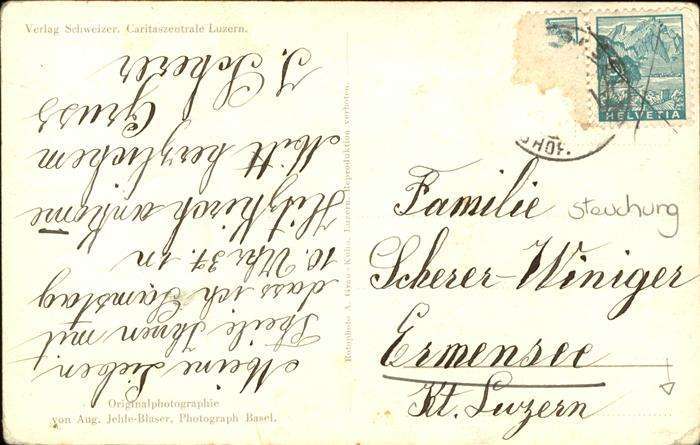 Verlag Schweizer. Caritaszentrale Luzern.
Meine Lieben,
Theile Ihnen mit
dass ich Samstag
10. Uhr 37. in
Hitzkirch ankom̄e
Mitt herzlichem
Gruss
J. Scherer
Originalphotographie
von Aug. Jehle-Blaser, Photograph Basel.
Luzern. Reproduktion verboten.
HELVETIA
Familie
Stauchung
Scherer-Winiger
Ermensee
Kt. Luzern